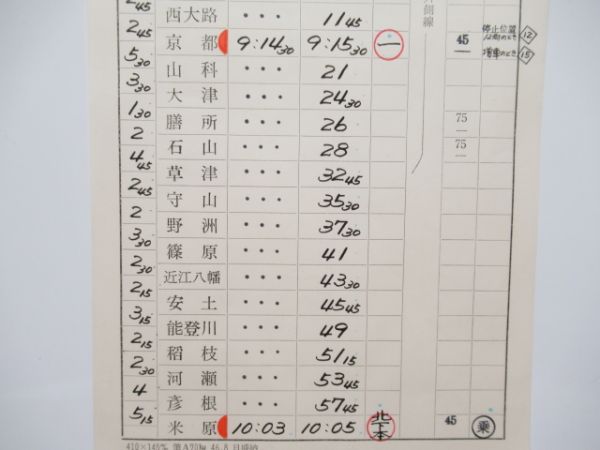 2 45 西大路 ・・・ 11 45
京都 9:14 30 9:15 30 一 45 停止位置 12
5 30 山科 ・・・ 21 増車のとき 15
3 30 大津 ・・・ 24 30
1 30 膳所 ・・・ 26 75
2 石山 ・・・ 28 75
4 45 草津 ・・・ 32 45
2 45 守山 ・・・ 35 30
2 野洲 ・・・ 37 30
3 30 篠原 ・・・ 41
2 30 近江八幡 ・・・ 43 30
2 15 安土 ・・・ 45 45
3 15 能登川 ・・・ 49
2 15 稲枝 ・・・ 51 15
2 30 河瀬 ・・・ 53 45
4 彦根 ・・・ 57 45
5 15 米原 10:03 10:05 北下本 45 乗